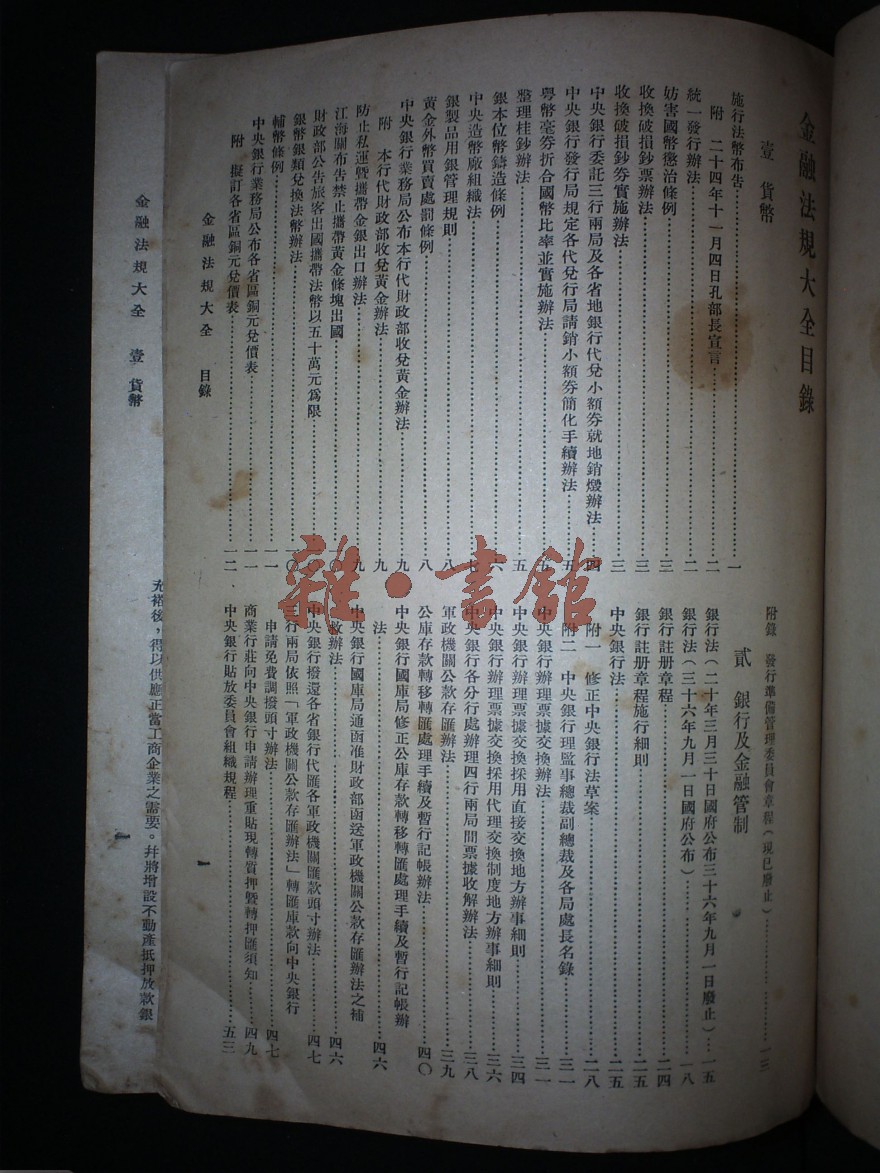 金融法規大全目錄
壹 貨幣
施行法幣布告……一
附 二十四年十一月四日孔部長宣言……二
統一發行辦法……二
妨害國幣懲治條例……三
收換破損鈔票辦法……三
收換破損鈔券實施辦法……三
中央銀行委託三行兩局及各省地銀行代兌小額券就地銷燬辦法……四
中央銀行發行局規定各代兌行局請銷小額券簡化手續辦法……五
粵幣毫券折合國幣比率並實施辦法……五
整理桂鈔辦法……五
銀本位幣鑄造條例……六
中央造幣廠組織法……七
銀製品用銀管理規則……八
黃金外幣買賣處罰條例……八
中央銀行業務局公布本行代財政部收兌黃金辦法……九
附 本行代財政部收兌黃金辦法……九
防止私運暨攜帶金銀出口辦法……九
江海關布告禁止攜帶黃金條塊出國……一〇
財政部公告旅客出國攜帶法幣以五十萬元爲限……一〇
銀幣銀類兌換法幣辦法……一〇
輔幣條例……一一
中央銀行業務局公布各省區銅元兌價表……一一
附 擬訂各省區銅元兌價表……一二
附錄 發行準備管理委員會章程(現已廢止)……一三
貳 銀行及金融管制
銀行法(二十年三月三十日國府公布三十六年九月一日廢止)……一五
銀行法(三十六年九月一日國府公布)……一八
銀行註册章程……二四
銀行註册章程施行細則……二五
中央銀行法……二五
附一 修正中央銀行法草案……二八
附二 中央銀行理監事總裁副總裁及各局處長名錄……三一
中央銀行辦理票據交換辦法……三一
中央銀行辦理票據交換採用直接交換地方辦事細則……三四
中央銀行辦理票據交換採用代理交換制度地方辦事細則……三六
中央銀行各分行處辦理四行兩局間票據收解辦法……三八
軍政機關公款存匯辦法……三九
公庫存款轉移轉匯處理手續及暫行記帳辦法……四〇
中央銀行國庫局修正公庫存款轉移轉匯處理手續及暫行記帳辦
法……四六
中央銀行國庫局通函准財政部函送軍政機關公款存匯辦法之補
救辦法……四六
中央銀行撥還各省銀行代匯各軍政機關匯款頭寸辦法……四七
三行兩局依照「軍政機關公款存匯辦法」轉匯庫款向中央銀行
申請免費調撥頭寸辦法……四七
商業行莊向中央銀行申請辦理重貼現轉質押暨轉押匯須知……四九
中央銀行貼放委員會組織規程……五三
金融法規大全 目錄
一
金融法規大全 壹 貨幣
充裕後，得以供應正當工商企業之需要。幷將增設不動產抵押放款銀
一
雜·書館